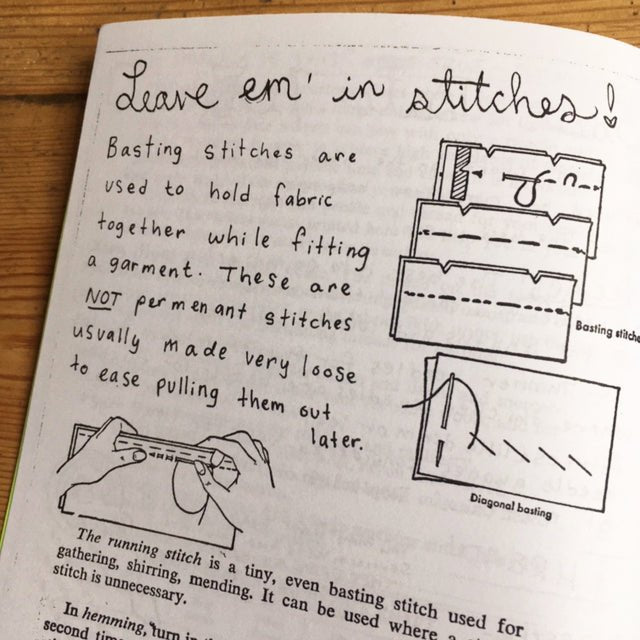 Leave em' in stitches!
Basting stitches are
used to hold fabric
together while fitting
a garment. These are
NOT permenant stitches
usually made very loose
to ease pulling them out
later.
Basting stitche
Diagonal basting
The running stitch is a tiny, even basting stitch used for
gathering, shirring, mending. It can be used where a
stitch is unnecessary.
In hemming, turn in
second time